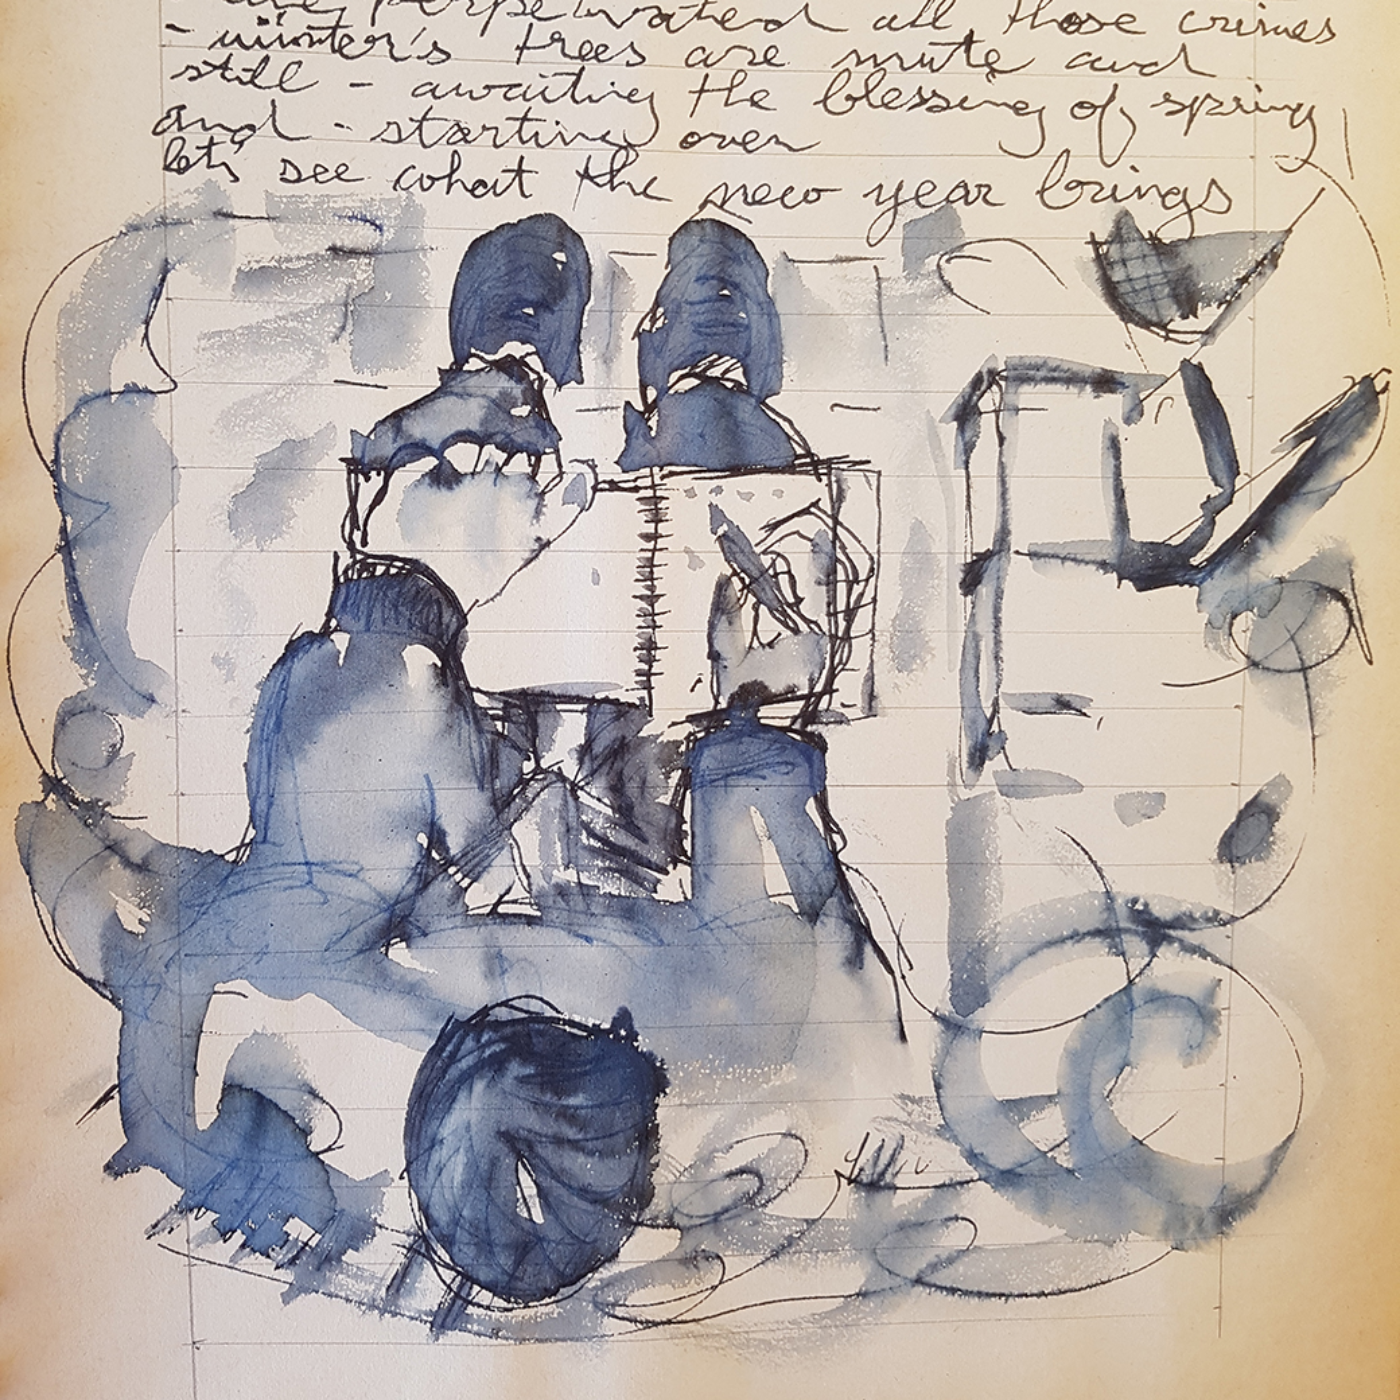 perpetrated all those crimes
- winter's trees are mute and
still - awaiting the blessing of spring
and - starting over
let's see what the new year brings